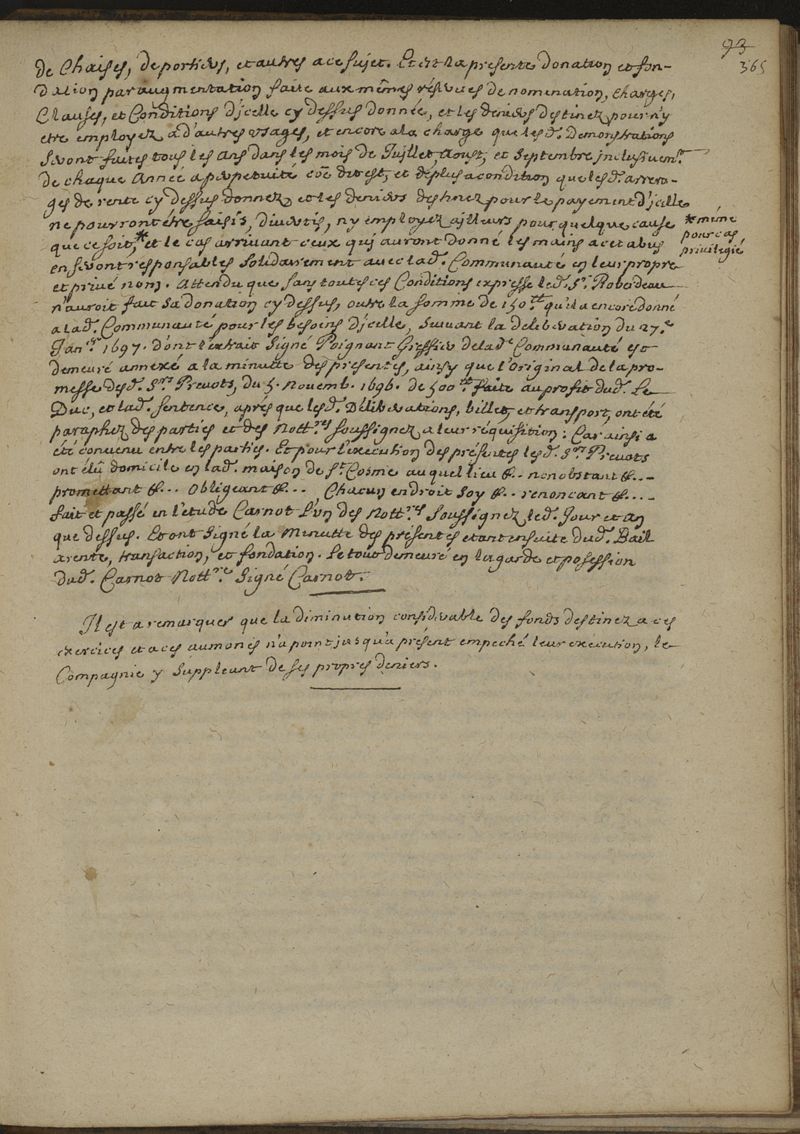 93
365
de Chaises, de portiers, et autres a ce sujet. Et est la presente donation et fon-
dation par augmentation faite aux mêmes réserves de nomination, charges,
Clauses, et Conditions d'jcelle cy dessus donnée, et les deniers destinez pour n'y
etre employez a d'autres usages, et encore a la charge que lesd. Demonstrations
seront faites tous les ans dans les mois de Juillet, Aoust, et Septembre jnclusivem.t
de chaque Année a perpetuité coe dit est, et de plus a condition que lesd. arrera-
ges de rente cy dessus donnez et les deniers destinez pour le payement d'jcelle
ne pourront être saisis, divertis, ny employez ailleurs pour quelque cause
que ce soit,* et le cas arrivant ceux qui auront donné les mains a cet abus
*même
pour cas
privilegié
en seront responsables solidairement avec lad. Communauté en leur propre
et privé nom. Attendu que sans toutes ces Conditions expresse led. Sr. Roberdeau
n'auroit fait sa donation cy dessus, outre la somme de 150.tt qu'il a encore donné
a lad. Communauté pour les besoins d'jcelle, suivant la deliberation du 27.e
Jan.er 1697. dont l'extrait signé Poignant Greffier de lad.e Communauté est
demeuré annexé a la minutte des presentes, ainsy que l'Original de la pro-
messe desd. Srs. Prevots, du 5. Novemb. 1696. de 500.tt faite au profit dud. Le
Duc, et lad. sentence, aprés que lesd. Déliberations, billet, et transport, ont été
paraphez des parties et des Nott.res soussignez a leur réquisition: Car ainsi a
été convenu entre les parties. Et pour l'execution des présentes lesd. Srs. Prevots
ont élû domicile en lad. maison de St. Cosme auquel lieu &.. nonobstant &...
promettant &... Obligeant &..., Chacun en droit soy &.. renoncant &....
fait et passé en l'etude Carnot L'un des Nott.rs soussignez led. Jour et an
que dessus. Et ont signé la Minutte des présentes etant ensuite dud. Bail
a rente, transaction, et fondation. Le tout demeuré en la garde et possession
dud. Carnot Nott.re Signé Carnot.
Jl est a remarquer que la diminution considerable des fonds destinez a ces
exercices et a ces aumones n'a point jusqu'a present empeché leur execution, la
Compagnie y suppleant de ses propres deniers.